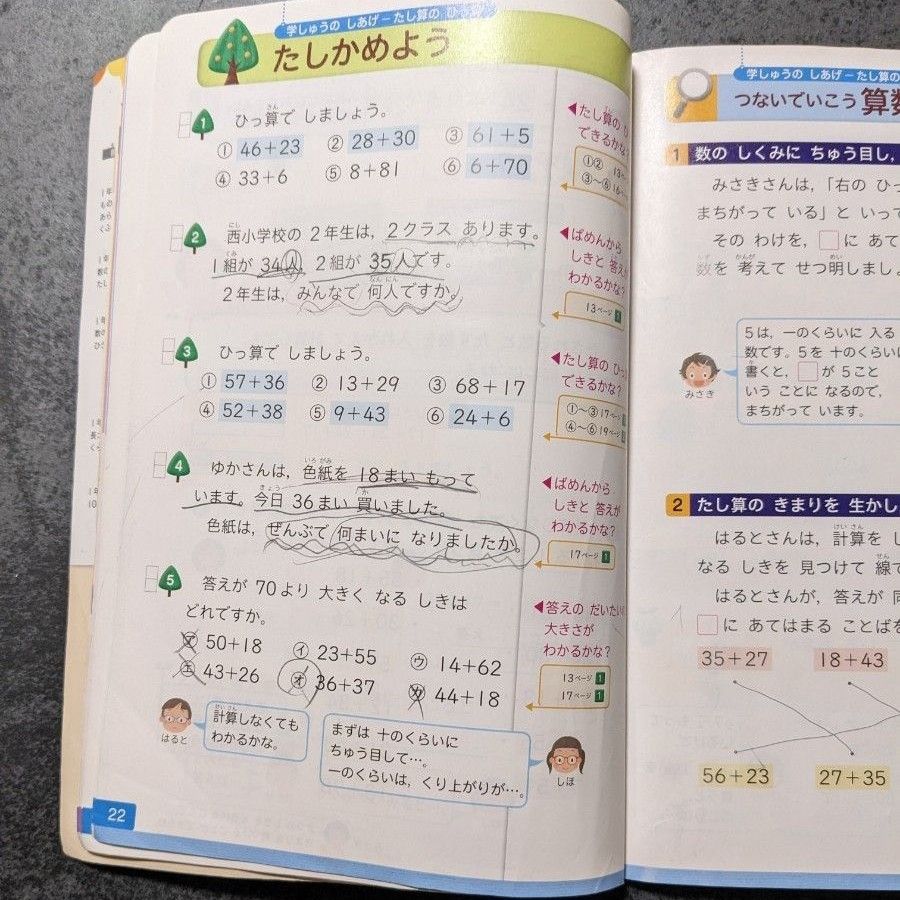 学しゅうの しあげ－たし算の
たしかめよう
1 ひっ算で しましょう。
① 46+23 ② 28+30 ③ 61+5
④ 33+6 ⑤ 8+81 ⑥ 6+70
◀たし算の
できるかな
①②
③〜⑥
2 西小学校の 2年生は，2クラス あります。
1組が 34人，2組が 35人です。
2年生は，みんなで 何人ですか。
◀ばめんから
しきと 答え
わかるかな？
13ページ 1
3 ひっ算で しましょう。
① 57+36 ② 13+29 ③ 68+17
④ 52+38 ⑤ 9+43 ⑥ 24+6
◀たし算の ひっ
できるかな？
①〜③17ページ
④〜⑥19ページ
4 ゆかさんは，色紙を 18まい もって
います。今日 36まい 買いました。
色紙は，ぜんぶで 何まいに なりましたか。
◀ばめんから
しきと 答えが
わかるかな？
17ページ 1
5 答えが 70より 大きく なる しきは
どれですか。
㋐ 50+18 ㋑ 23+55 ㋒ 14+62
㋓ 43+26 ㋔ 36+37 ㋕ 44+18
◀答えの だいたい
大きさが
わかるかな？
13ページ 1
17ページ 1
はると
計算しなくても
わかるかな。
まずは 十のくらいに
ちゅう目して…。
一のくらいは，くり上がりが…。
しほ
22
学しゅうの しあげ－たし算の
つないでいこう 算数
1 数の しくみに ちゅう目し，
みさきさんは，「右の ひっ
まちがって いる」と いって
その わけを，□に あて
数を 考えて せつ明しまし
みさき
5は，一のくらいに 入る
数です。5を 十のくらいに
書くと，□が 5こと
いう ことに なるので，
まちがって います。
2 たし算の きまりを 生かし
はるとさんは，計算を し
なる しきを 見つけて 線で
はるとさんが，答えが 同
□に あてはまる ことばを
35+27 18+43
56+23 27+35